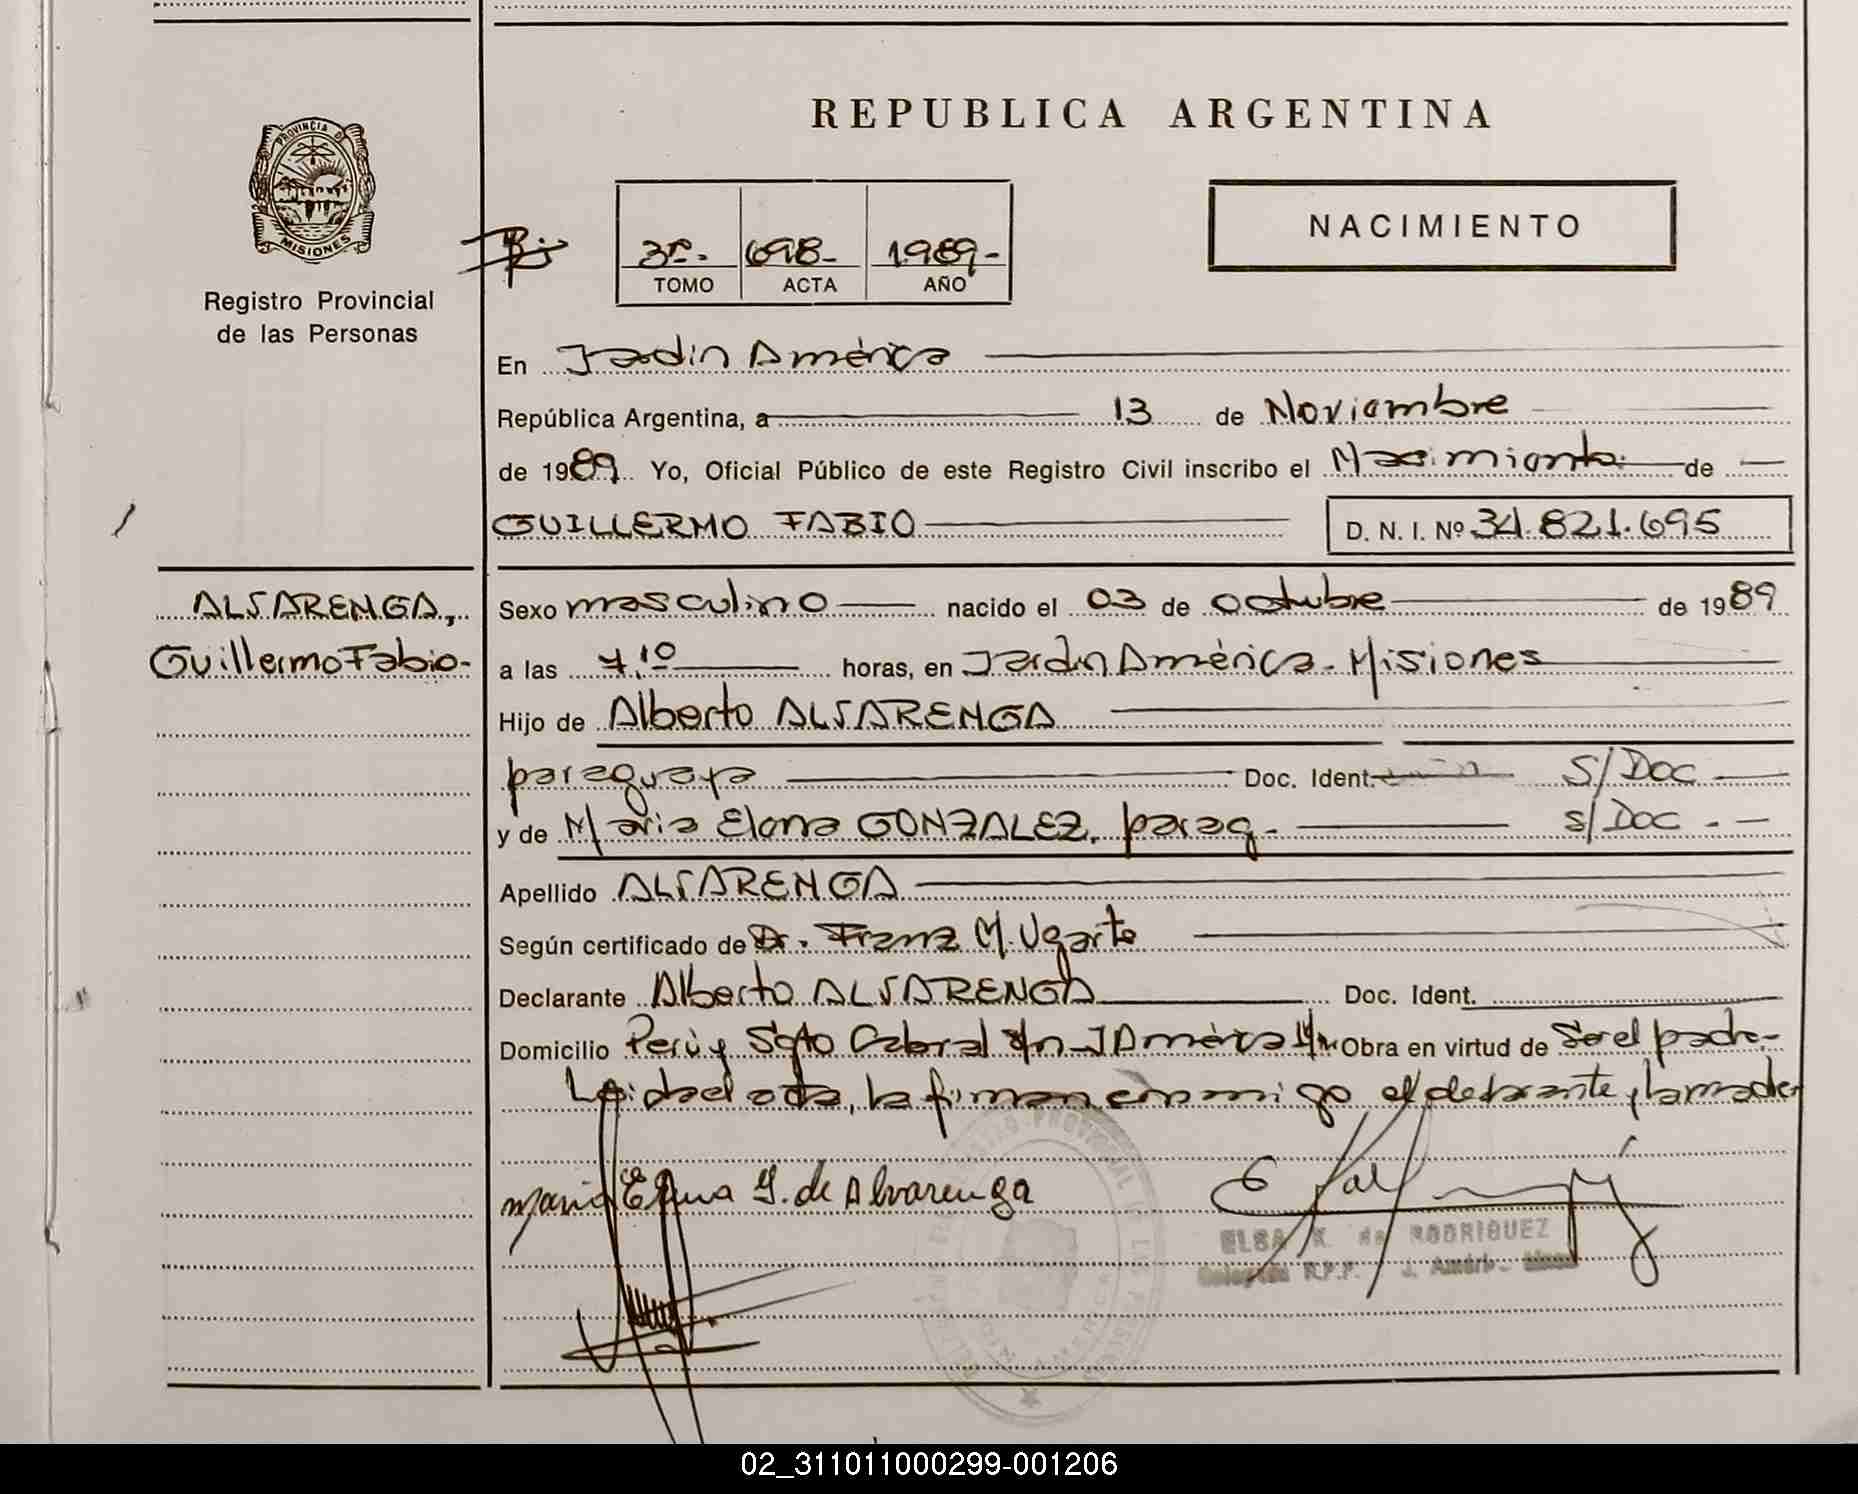 REPUBLICA ARGENTINA
PROVINCIA DE
MISIONES
Registro Provincial
de las Personas
3º.- 698- 1989-
TOMO ACTA AÑO
NACIMIENTO
En Jardín América
República Argentina, a 13 de Noviembre
de 1989. Yo, Oficial Público de este Registro Civil inscribo el Nacimiento de
GUILLERMO FABIO D. N. I. Nº 34.821.695
ALVARENGA,
Guillermo Fabio-
Sexo masculino nacido el 03 de octubre de 1989
a las 7,10 horas, en Jardín América - Misiones
Hijo de Alberto ALVARENGA
paraguaya Doc. Ident. S/Doc
y de Maria Elena GONZALEZ, parag.- S/Doc.-
Apellido ALVARENGA
Según certificado de Dr. Franz M. Ugarte
Declarante Alberto ALVARENGA Doc. Ident.
Domicilio Perú y Sgto Cabral s/n - J América Obra en virtud de Ser el padre-
Leída el acta, la firman conmigo el declarante y la madre
Maria Elena G. de Alvarenga
ELSA K. de RODRIGUEZ
R.P.P. J. Améri-
02_311011000299-001206